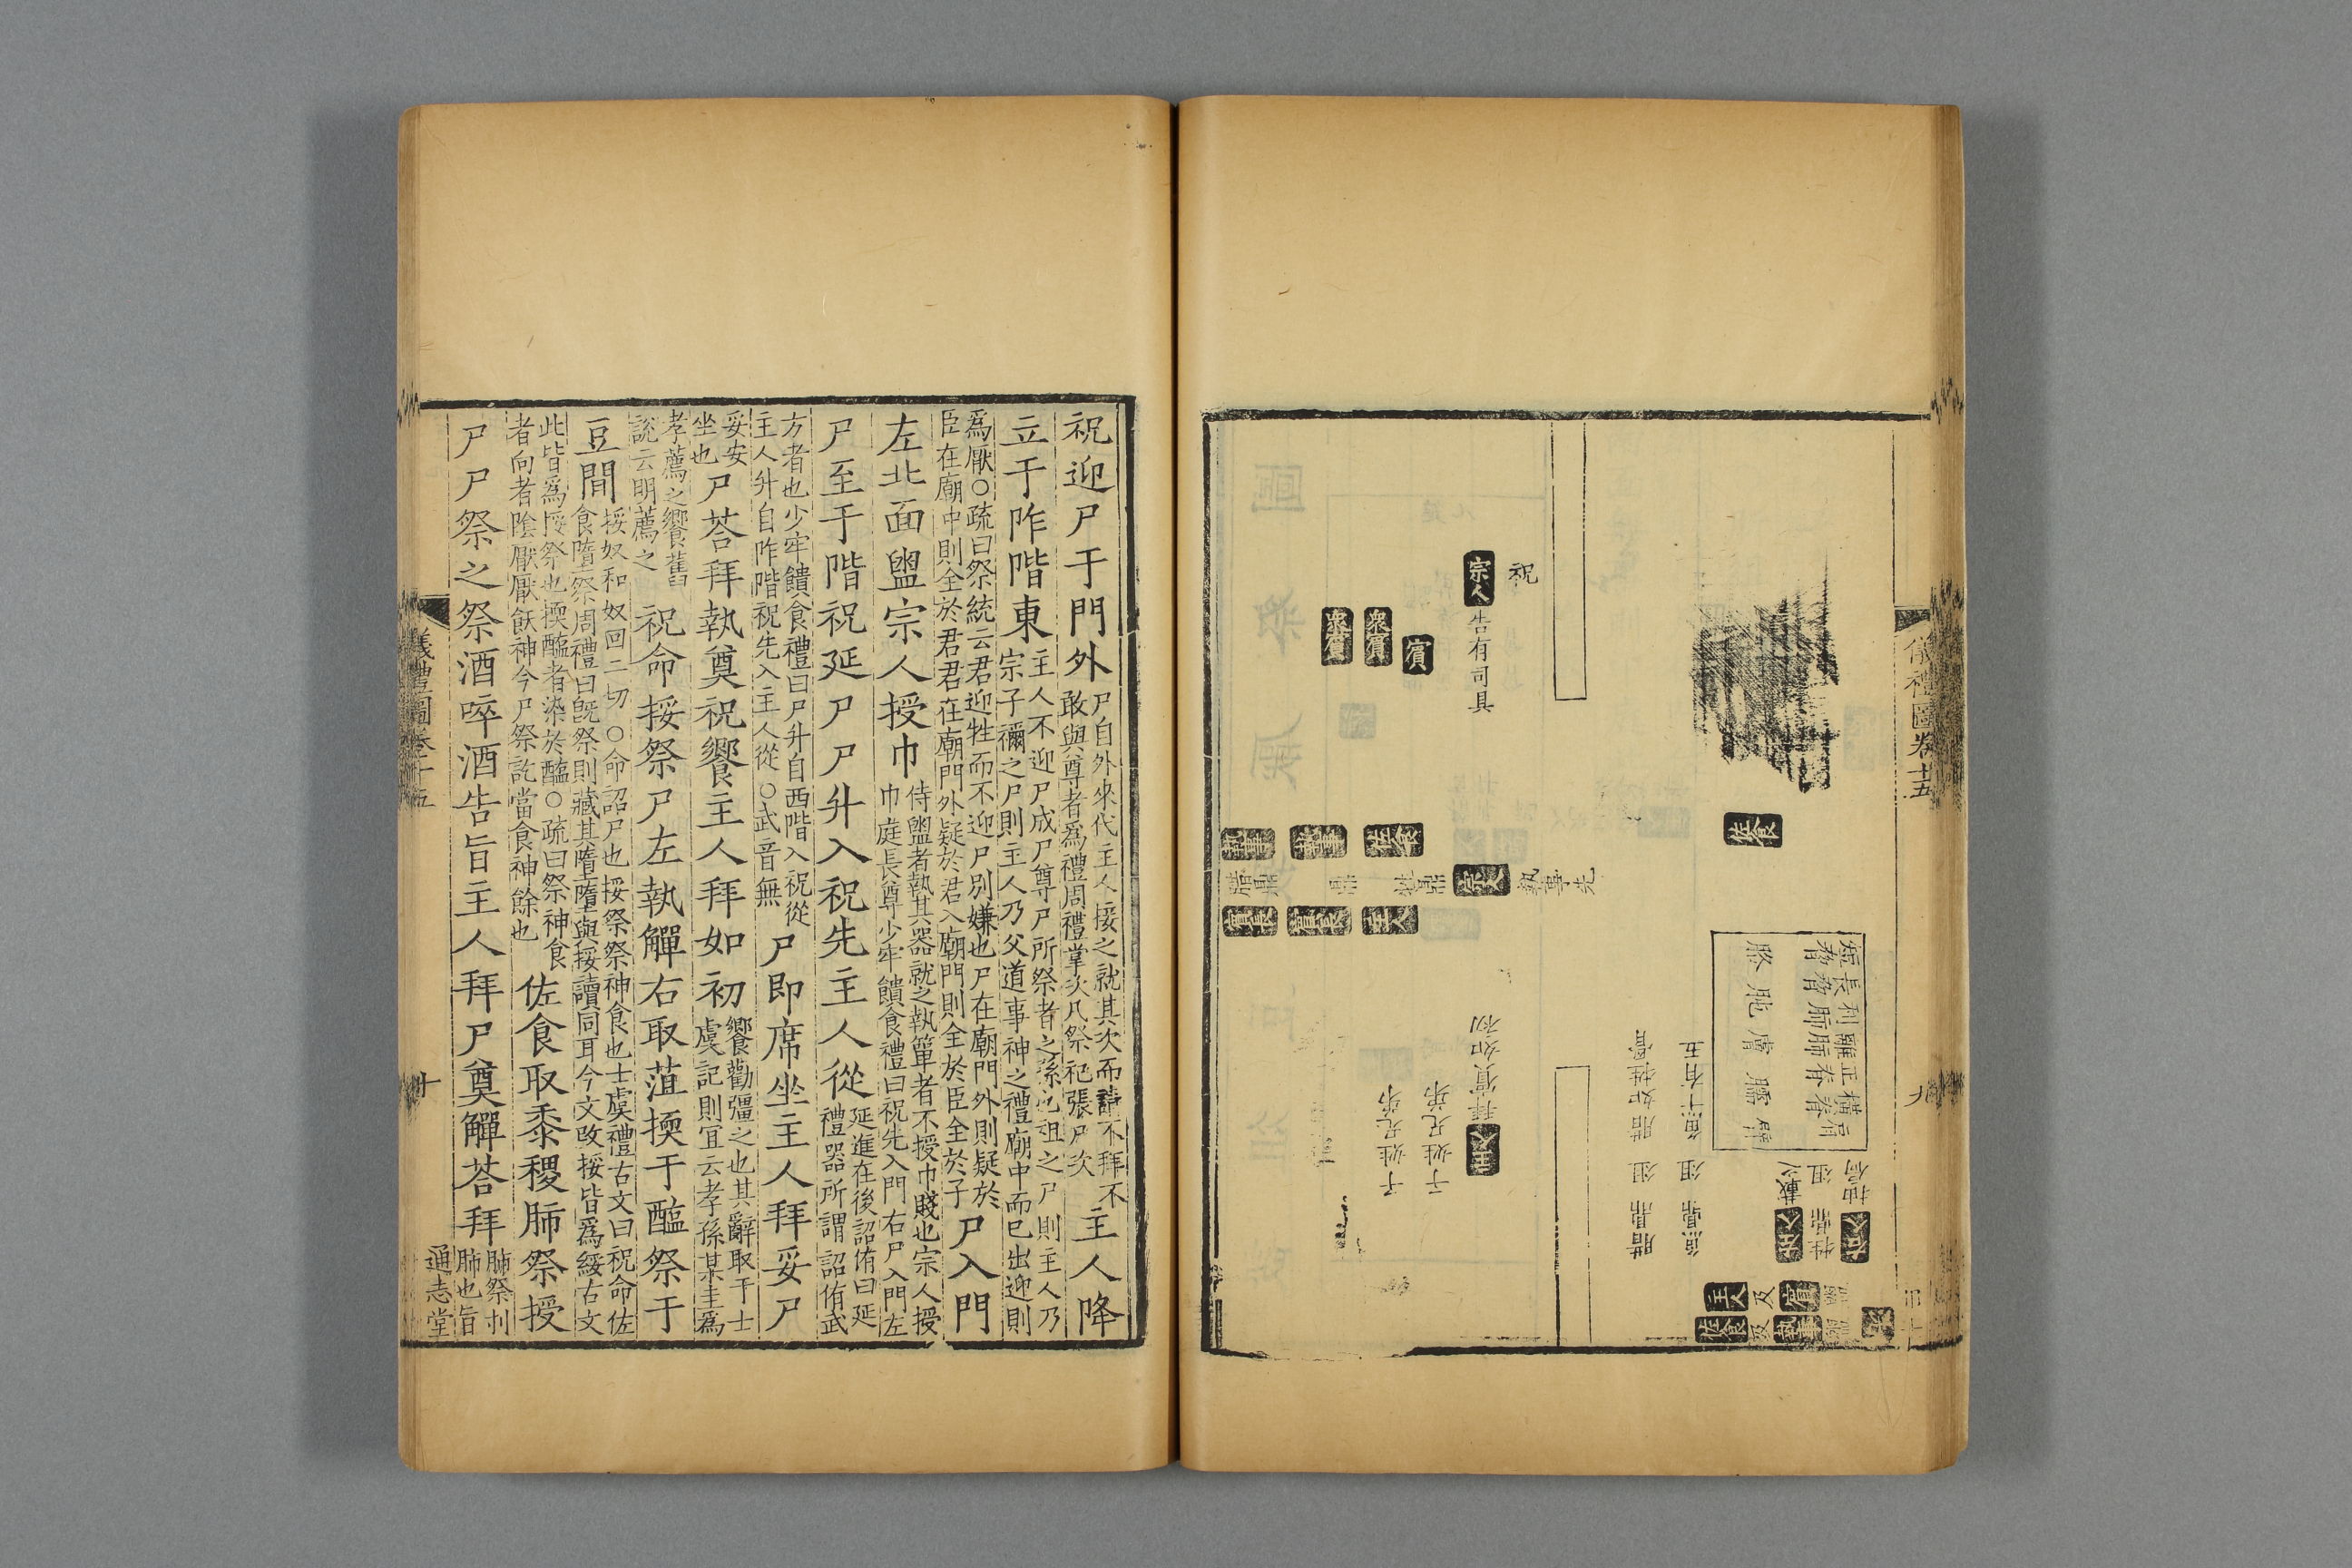 儀禮圖卷十五
九
祝
宗人
告有司具
賓
衆賓
衆賓
佐食
執事
執事
佐食
腊鼎
鼎
牲鼎
宗人
執事先
賓長
賓長
主人
主人
拜賓如初
子姓兄弟
子姓兄弟
魚鼎 俎 魚十有五
腊鼎 俎 腊如牲骨
短脅
長脅
利肺
離肺
正脊
橫脊
肩
胳
肫
膚
臑
臂
右人
抽扃
牲鼎 俎
右人
載之
主人及賓
佐食及執事
祝迎尸于門外尸自外來代主人接之就其次而請不拜不
敢與尊者爲禮周禮掌次凡祭祀張尸次主人降
立于阼階東主人不迎尸成尸尊尸所祭者之孫也祖之尸則主人乃
宗子禰之尸則主人乃父道事神之禮廟中而已出迎則
爲厭○疏曰祭統云君迎牲而不迎尸別嫌也尸在廟門外則疑於
臣在廟中則全於君君在廟門外疑於君入廟門則全於臣全於子尸入門
左北面盥宗人授巾侍盥者執其器就之執簞者不授巾賤也宗人授
巾庭長尊少牢饋食禮曰祝先入門右尸入門左
尸至于階祝延尸尸升入祝先主人從延進在後詔侑曰延
禮器所謂詔侑武
方者也少牢饋食禮曰尸升自西階入祝從
主人升自阼階祝先入主人從○武音無尸即席坐主人拜妥尸
妥安
坐也尸荅拜執奠祝饗主人拜如初饗勸彊之也其辭取于士
虞記則宜云孝孫某圭爲
孝薦之饗舊
說云明薦之祝命挼祭尸左執觶右取菹擩于醢祭于
豆間挼奴和奴回二切○命詔尸也挼祭祭神食也士虞禮古文曰祝命佐
食墮祭周禮曰旣祭則藏其墮墮與挼讀同耳今文改挼皆爲綏古文
此皆爲挼祭也擩醢者染於醢○疏曰祭神食
者向者陰厭厭飫神今尸祭訖當食神餘也佐食取黍稷肺祭授
尸尸祭之祭酒啐酒告旨主人拜尸奠觶荅拜肺祭刌
肺也旨
儀禮圖卷十五
十
通志堂